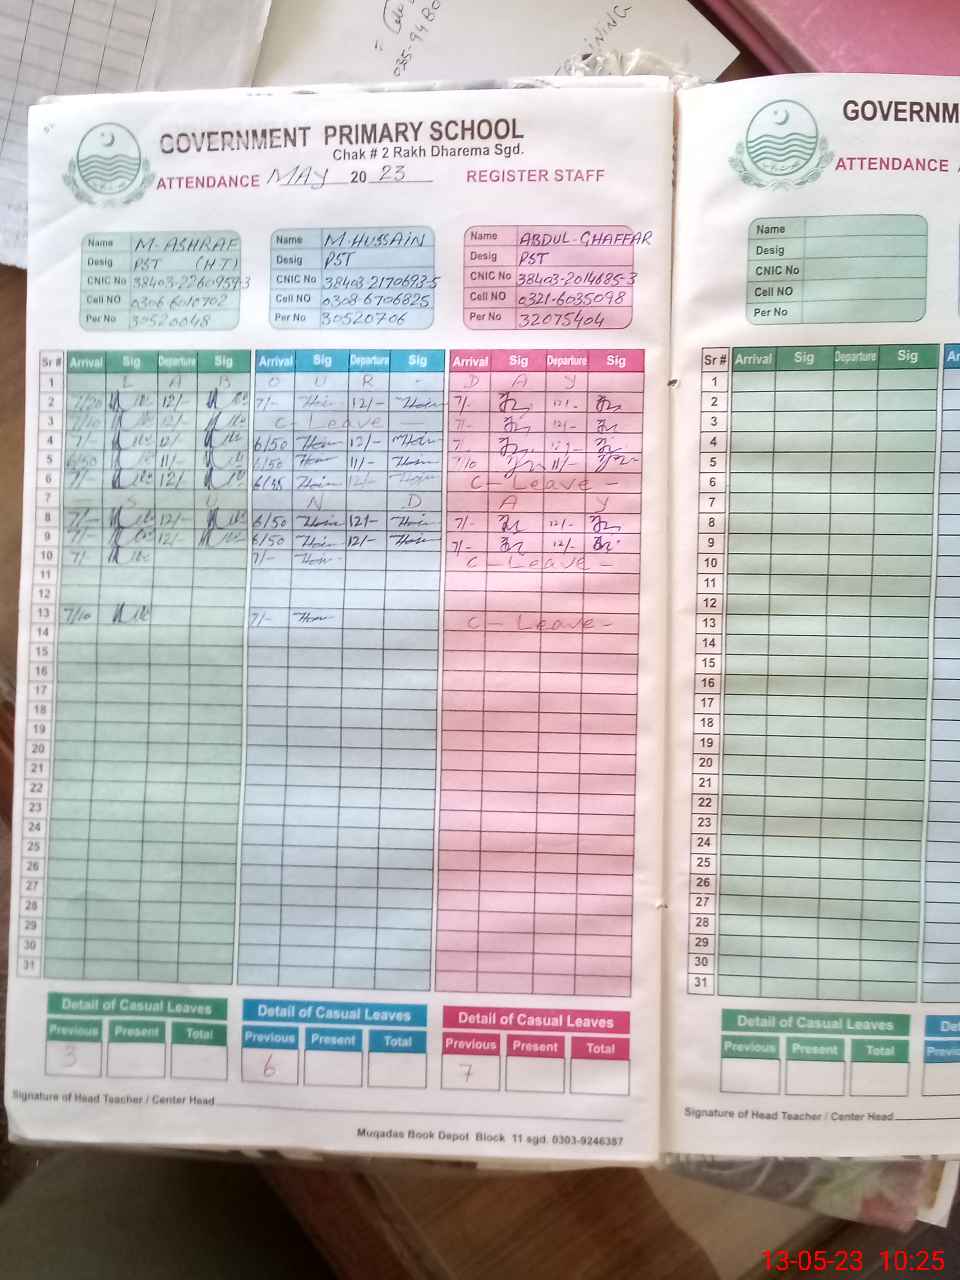 GOVERNMENT PRIMARY SCHOOL
Chak # 2 Rakh Dharema Sgd.
ATTENDANCE MAY 20 23 REGISTER STAFF
Name M. ASHRAF
Desig PST (H.T)
CNIC No 38403-2260959-3
Cell NO 0306 6010702
Per No 30520048
Name M. HUSSAIN
Desig PST
CNIC No 38403-2170693-5
Cell NO 0308-6706825
Per No 30520706
Name ABDUL-GHAFFAR
Desig PST
CNIC No 38403-2014685-3
Cell NO 0321-6035098
Per No 32075404
Sr # Arrival Sig Departure Sig Arrival Sig Departure Sig Arrival Sig Departure Sig
1 L A B O U R - D A Y
2 7/20 12/- 7/- 12/- 7/- 12/-
3 7/10 12/- C - Leave - 7/- 12/-
4 7/- 12/- 6/50 12/- 7/- 12/-
5 6/50 11/- 6/50 11/- 7/10 11/-
6 7/- 12/- 6/35 12/- C - Leave -
7 - S U N D A Y
8 7/- 12/- 6/50 12/- 7/- 12/-
9 7/- 12/- 6/50 12/- 7/- 12/-
10 7/- 7/- C - Leave -
11
12
13 7/10 7/- C - Leave -
14
15
16
17
18
19
20
21
22
23
24
25
26
27
28
29
30
31
Detail of Casual Leaves Detail of Casual Leaves Detail of Casual Leaves
Previous Present Total Previous Present Total Previous Present Total
3 6 7
Signature of Head Teacher / Center Head
Muqadas Book Depot Block 11 sgd. 0303-9246387
GOVERNM
ATTENDANCE
Name
Desig
CNIC No
Cell NO
Per No
Sr # Arrival Sig Departure Sig
1
2
3
4
5
6
7
8
9
10
11
12
13
14
15
16
17
18
19
20
21
22
23
24
25
26
27
28
29
30
31
Detail of Casual Leaves
Previous Present Total
Signature of Head Teacher / Center Head
13-05-23 10:25